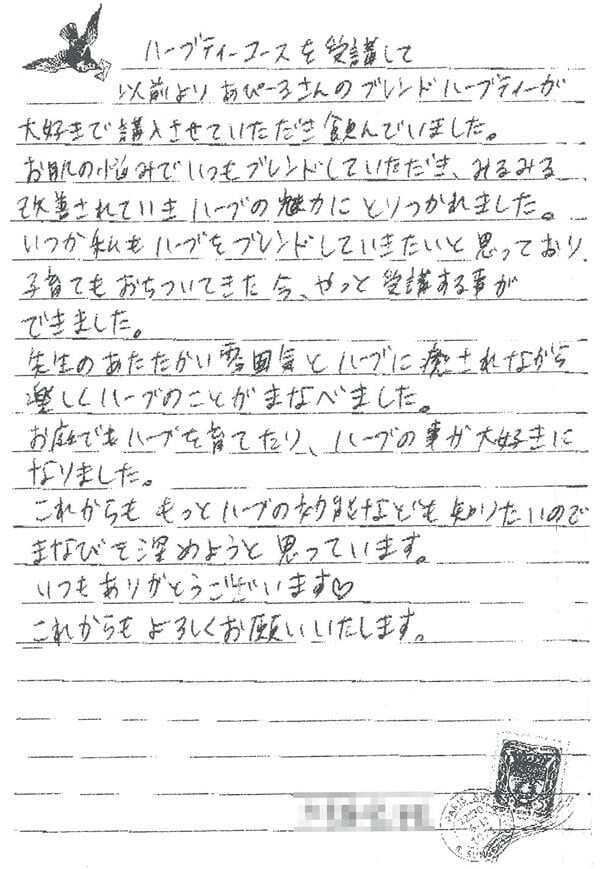 ハーブティーコースを受講して
以前よりあぴーるさんのブレンドハーブティーが
大好きで購入させていただき飲んでいました。
お肌の悩みでいつもブレンドしていただき、みるみる
改善されていきハーブの魅力にとりつかれました。
いつか私もハーブをブレンドしていきたいと思っており、
子育てもおちついてきた今、やっと受講する事が
できました。
先生のあたたかい雰囲気とハーブに癒されながら
楽しくハーブのことがまなべました。
お庭でもハーブを育てたり、ハーブの事が大好きに
なりました。
これからももっとハーブの効能なども知りたいので
まなびを深めようと思っています。
いつもありがとうございます♡
これからもよろしくお願いいたします。
PARIS